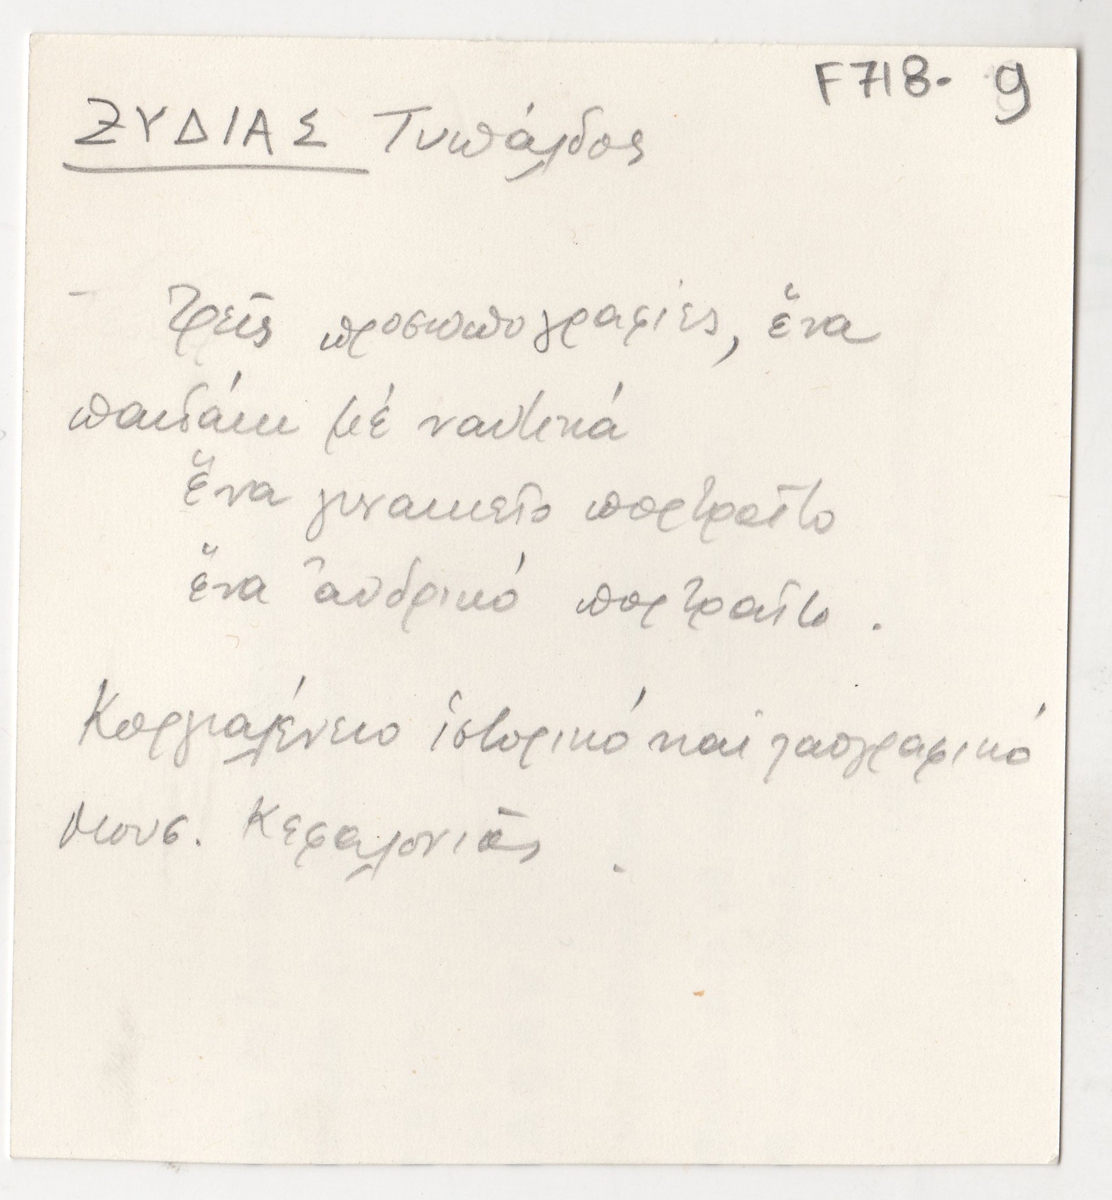 F718- 9
ΖΥΔΙΑΣ Τυπάλδος
- Τρεῖς προσωπογραφίες, ἕνα
παιδάκι μέ ναυτικά
ἕνα γυναικεῖο πορτραῖτο
ἕνα ἀνδρικό πορτραῖτο.
Κοργιαλένειο ἱστορικό καί λαογραφικό
Μουσ. Κεφαλονιᾶς.